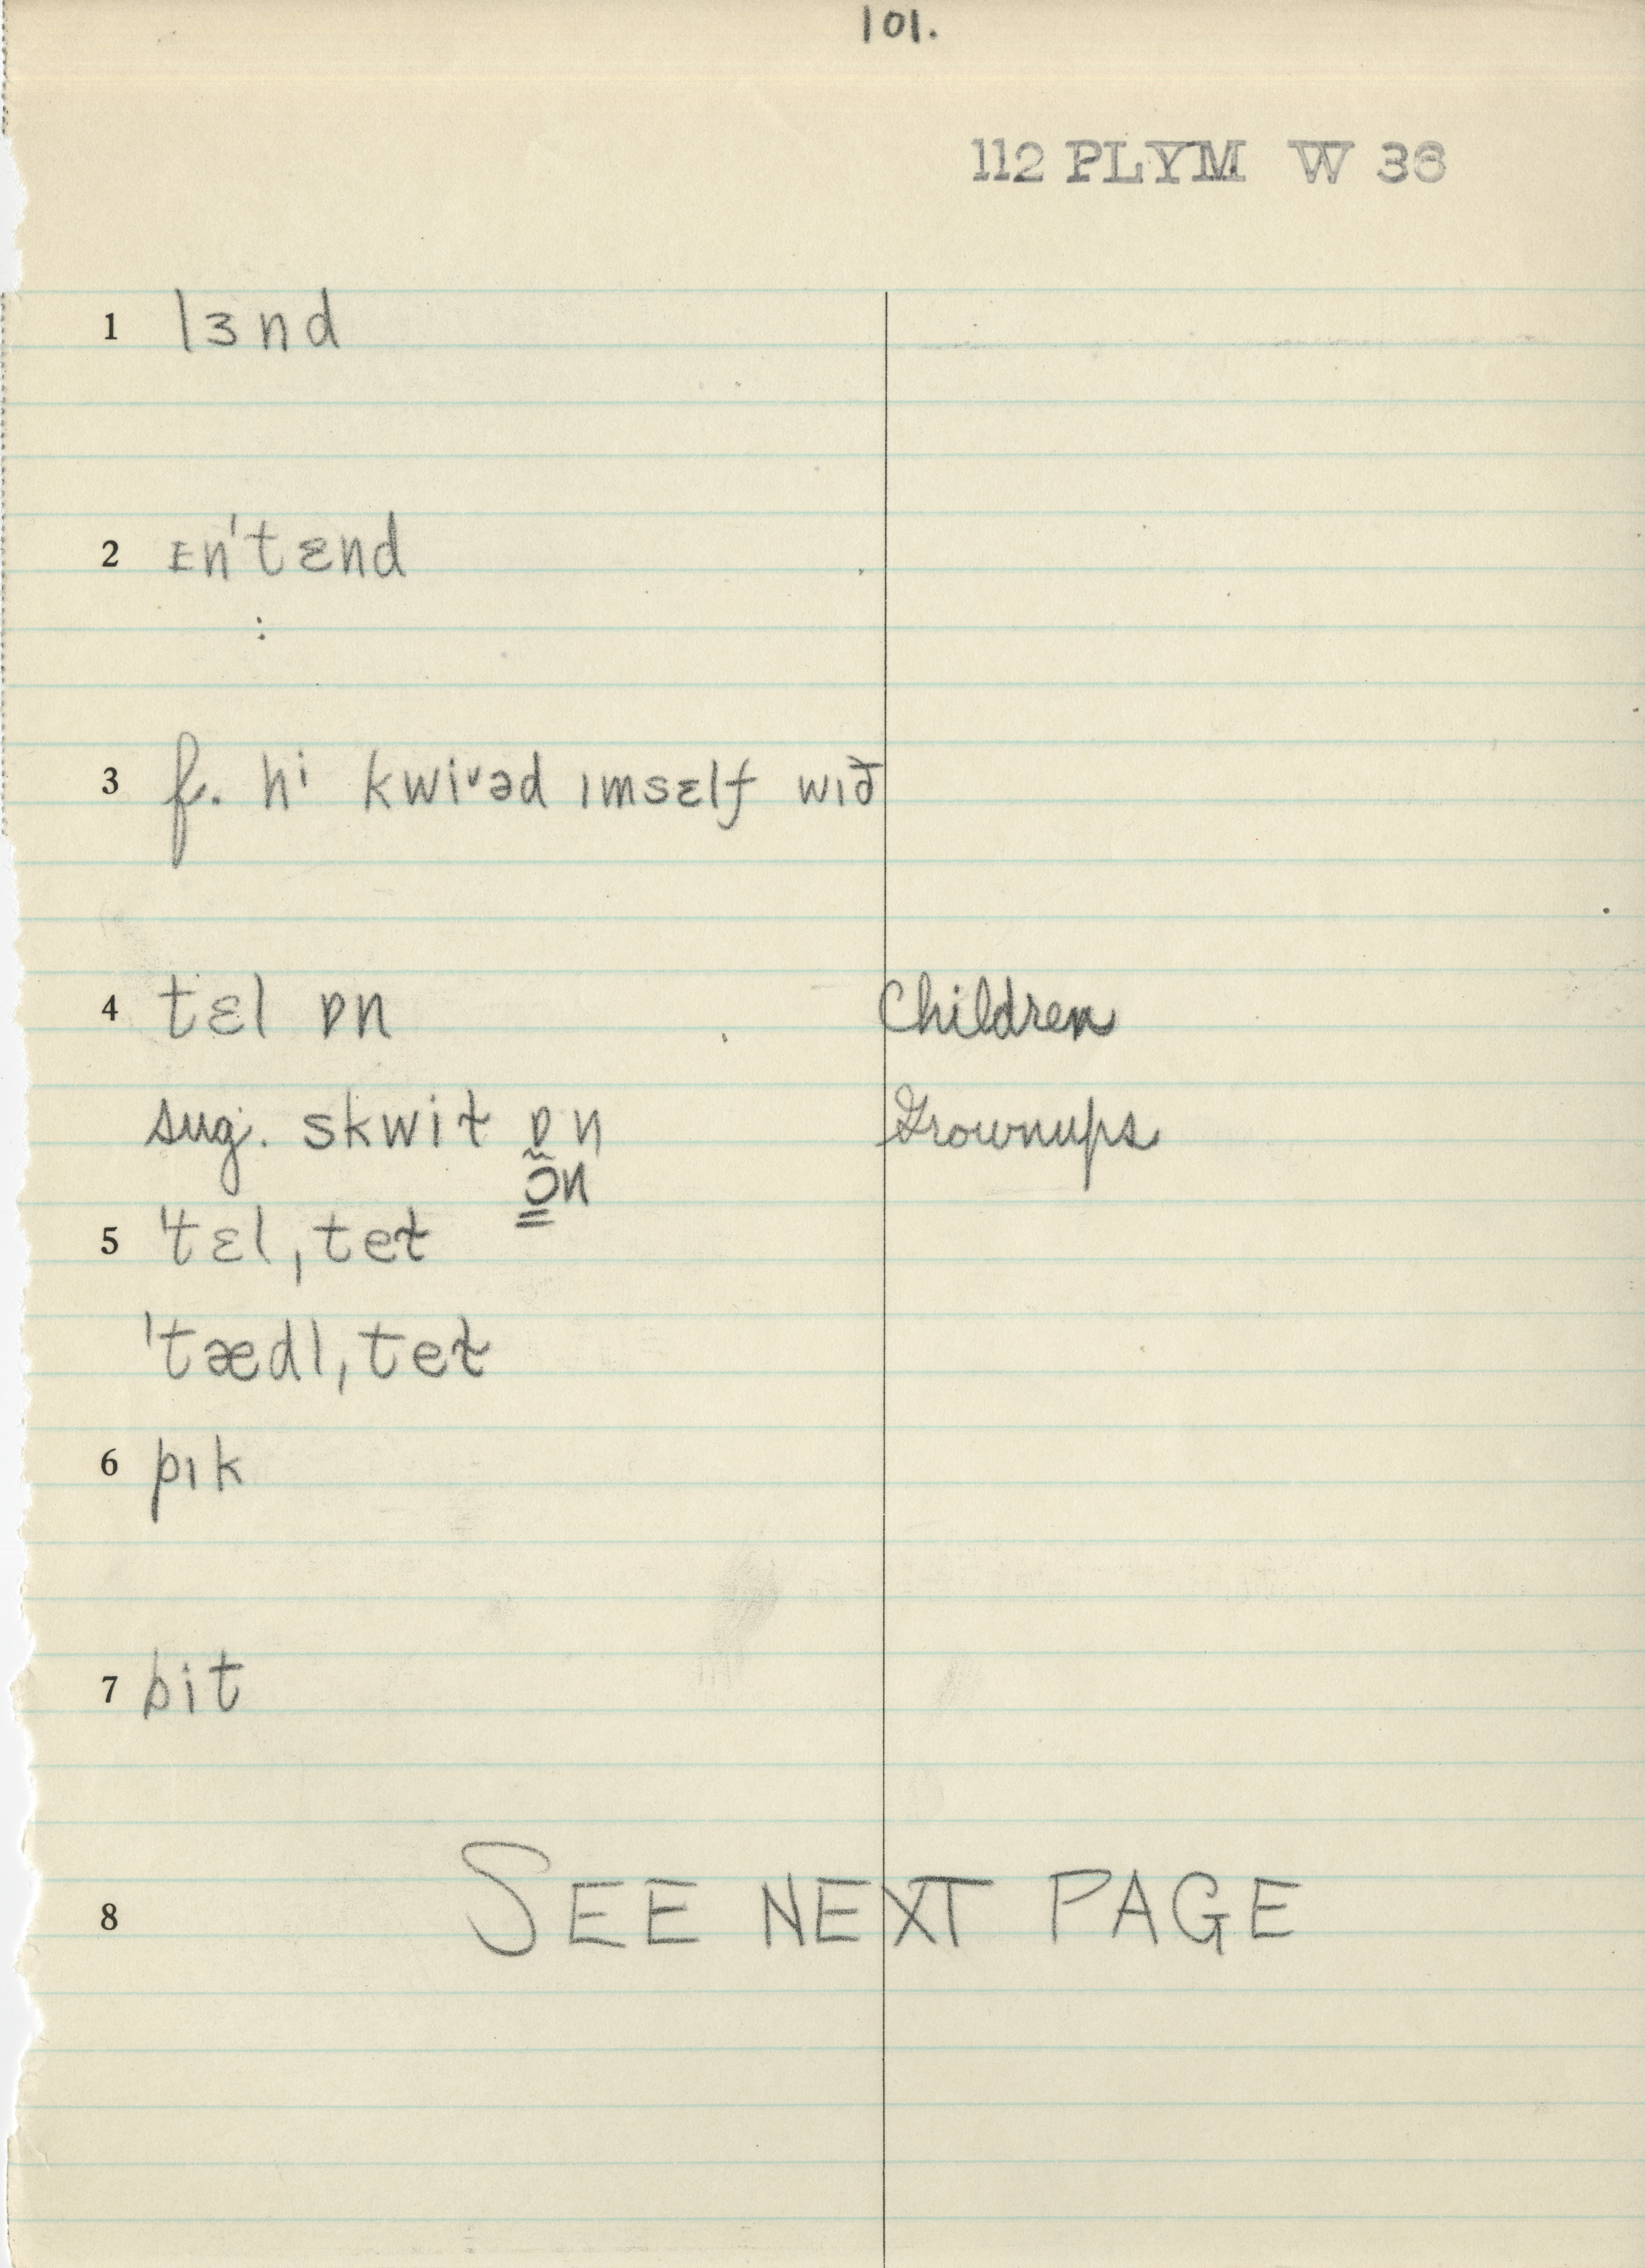 101.
112 PLYM W 36
1 lɜnd
2 ɪn'tɛnd
3 f. hi kwiᵛəd ımsɛlf wıð
4 tɛl ɒn Children
sug. skwiƚ ɒn Grownups
ɔ̃n
5 'tɛl,teƚ
'tædl,teƚ
6 pık
7 bit
8 SEE NEXT PAGE